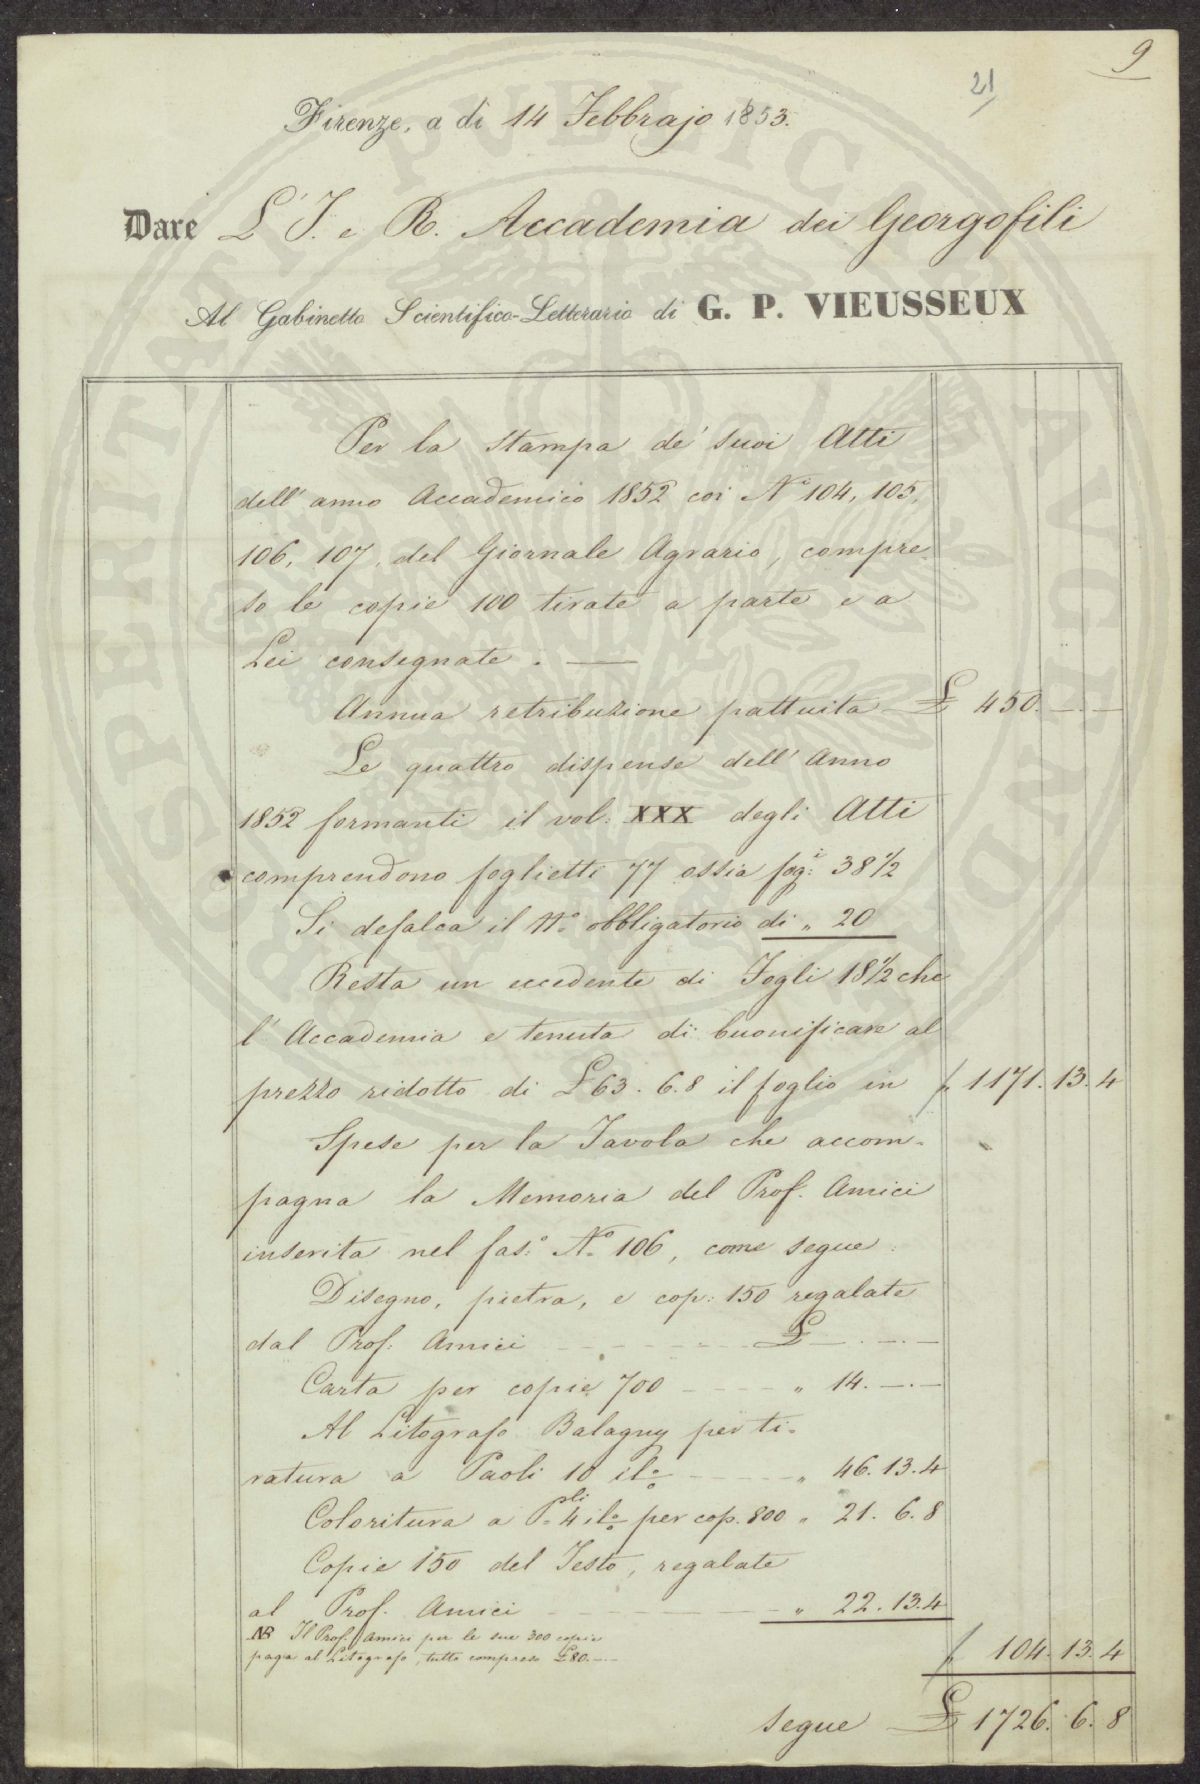 9
21
Firenze, a dì 14 Febbrajo 1853.
Dare L'I. e R. Accademia dei Georgofili
Al Gabinetto Scientifico-Letterario di G. P. VIEUSSEUX
Per la stampa de' suoi Atti
dell'anno Accademico 1852 coi Ni 104, 105,
106, 107, del Giornale Agrario, compre-
so le copie 100 tirate a parte e a
Lei consegnate. —
Annua retribuzione pattuita £ 450. — . —
Le quattro dispense dell'Anno
1852 formanti il vol: XXX degli Atti
comprendono foglietti 77 ossia fog:i 38 1/2
Si defalca il No obbligatorio di " 20
Resta un eccedente di Fogli 18 1/2 che
l'Accademia e tenuta di buonificare al
prezzo ridotto di £ 63. 6. 8 il foglio in " 1171. 13. 4
Spese per la Tavola che accom-
pagna la Memoria del Prof. Amici
inserita nel fas:o No 106, come segue:
Disegno, pietra, e cop: 150 regalate
dal Prof: Amici - - - - £ — . — . —
Carta per copie 700 - - - - " 14. — . —
Al Litografo Balagny per ti-
ratura a Paoli 10 il % - - - - " 46. 13. 4
Coloritura a Pli 4 il % per cop. 800 " 21. 6. 8
Copie 150 del Testo, regalate
al Prof. Amici - - - - " 22. 13. 4
NB Il Prof. Amici per le sue 300 copie
paga al Litografo, tutto compreso £ 80. —
" 104. 13. 4
segue £ 1726. 6. 8
PROSPERITATI PVBLICAE AVGENDAE